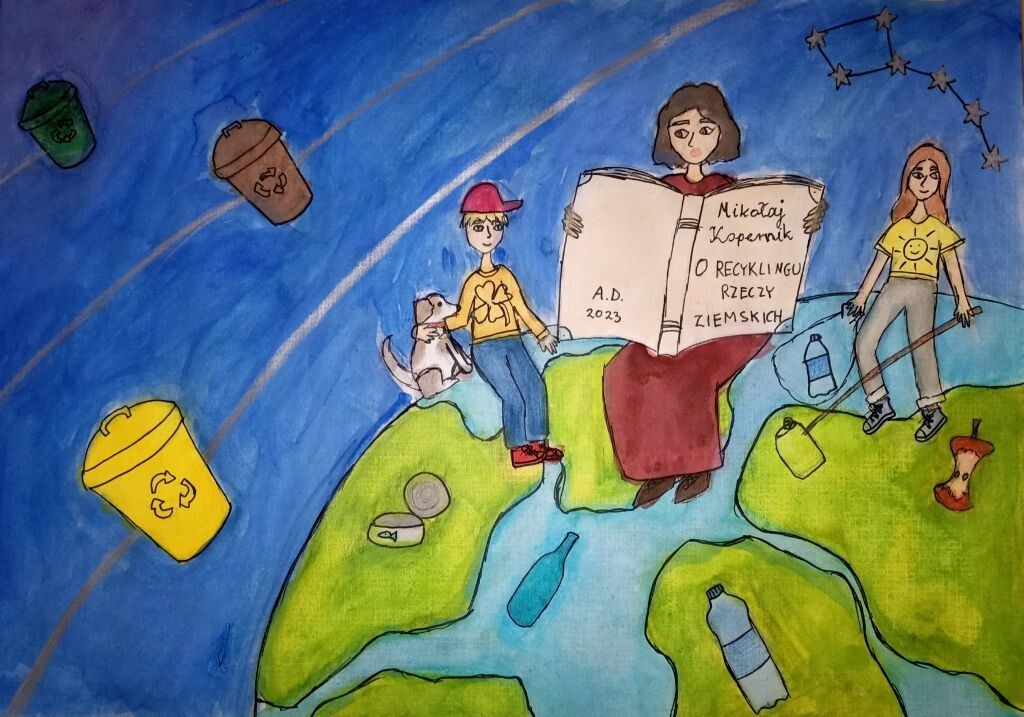 A.D.
2023
Mikołaj
Kopernik
O RECYKLINGU
RZECZY
ZIEMSKICH